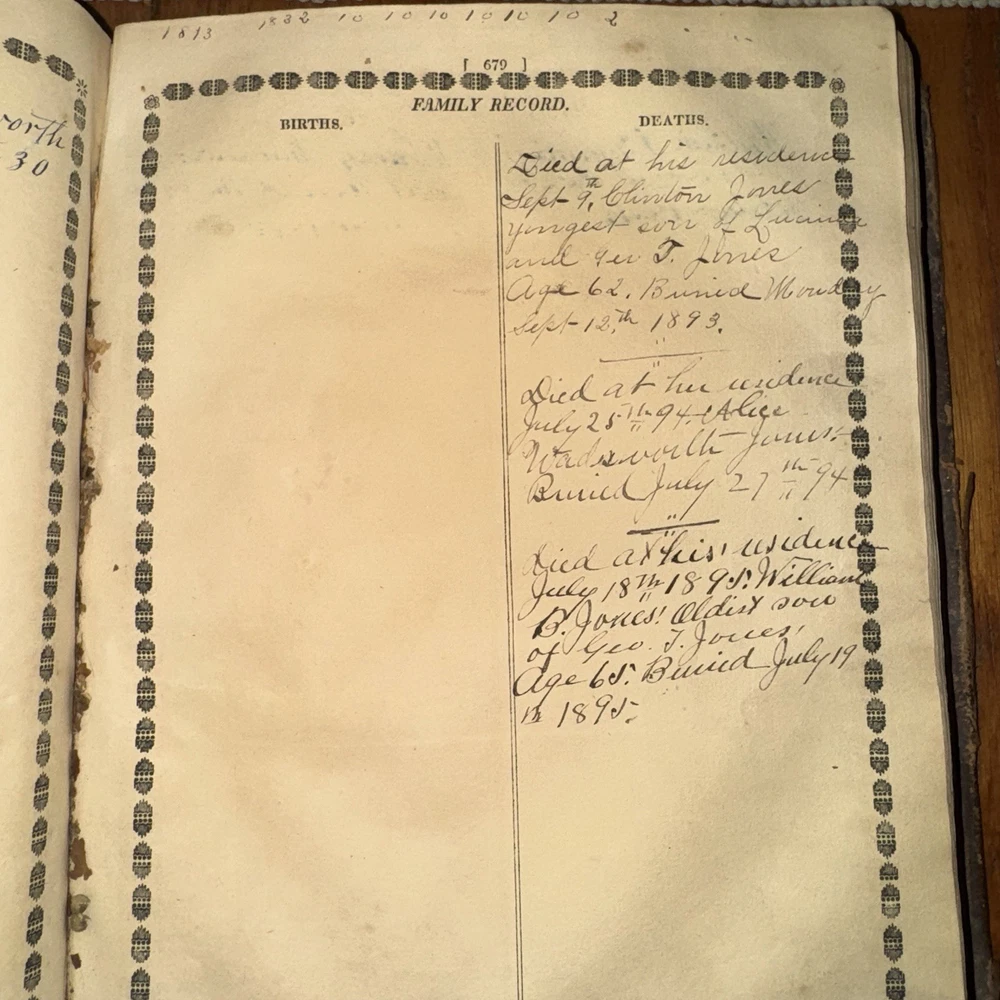 1813 1832 10 10 10 10 10 10 2
orth
30
[ 679 ]
FAMILY RECORD.
BIRTHS.
DEATHS.
Died at his residence
Sept 9,th Clinton Jones
yongest son of Lucinda
and Geo T. Jones
Age 62. Buried Monday
Sept 12,th 1893.
Died at her residence
July 25th 94. Alice
Wadsworth Jones.
Buried July 27th 94
Died at his residence
July 18th 1895. William
B. Jones. Oldist son
of Geo. T. Jones,
Age 65. Buried July 19
th 1895.